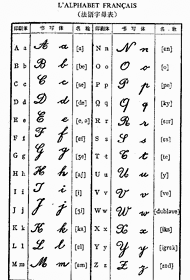 L'ALPHABET FRANÇAIS
(法语字母表)
印刷体 书写体 名称 印刷体 书写体 名称
A a A a [a] N n N n [ɛn]
B b B b [be] O o O o [o]
C c C c [se] P p P p [pe]
D d D d [de] Q q Q q [ky]
E e E e [ə, ɛ] R r R r [ɛr]
F f F f [ɛf] S s S s [ɛs]
G g G g [ʒe] T t T t [te]
H h H h [aʃ] U u U u [y]
I i I i [i] V v V v [ve]
J j J j [ʒi] W w W w [dublǝve]
K k K k [ka] X x X x [iks]
L l L l [ɛl] Y y Y y [igrɛk]
M m M m [ɛm] Z z Z z [zɛd]